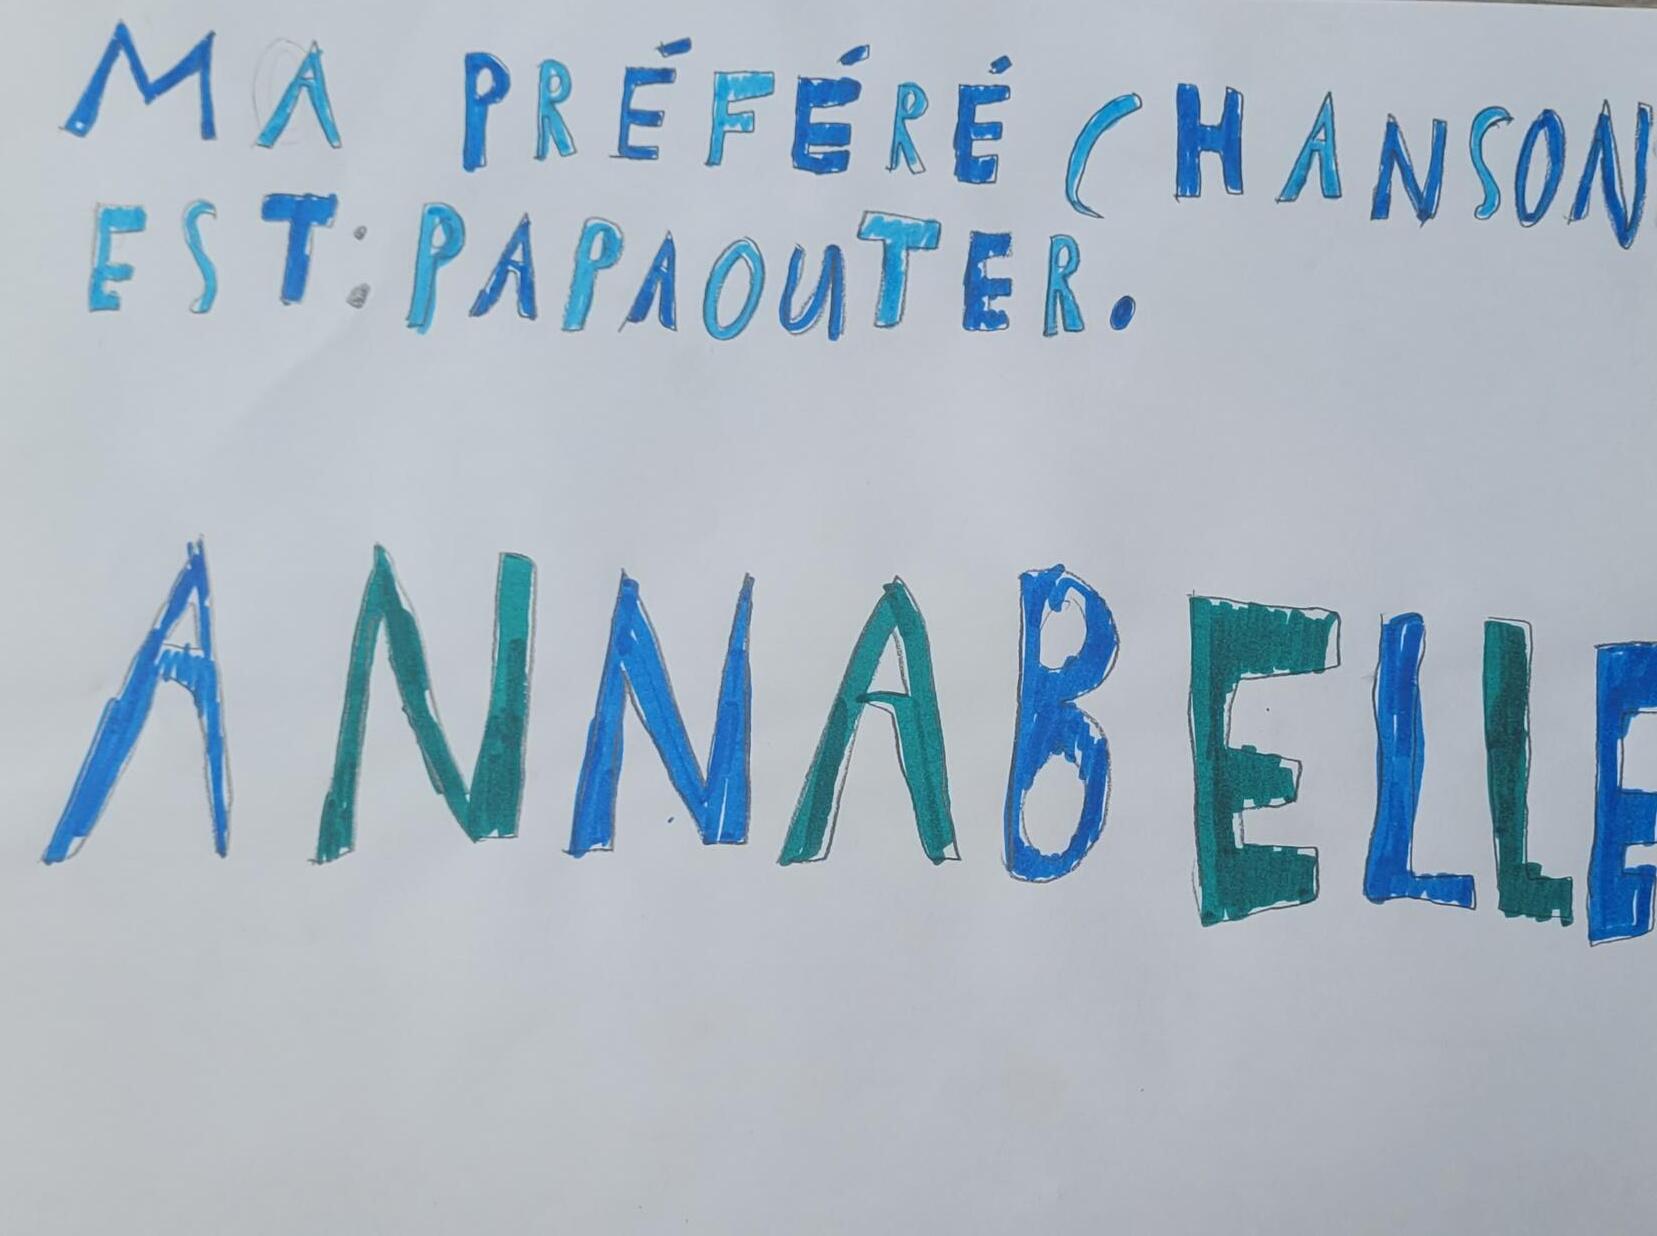 MA PRÉFÉRÉ CHANSON
EST: PAPAOUTER.
ANNABELLE